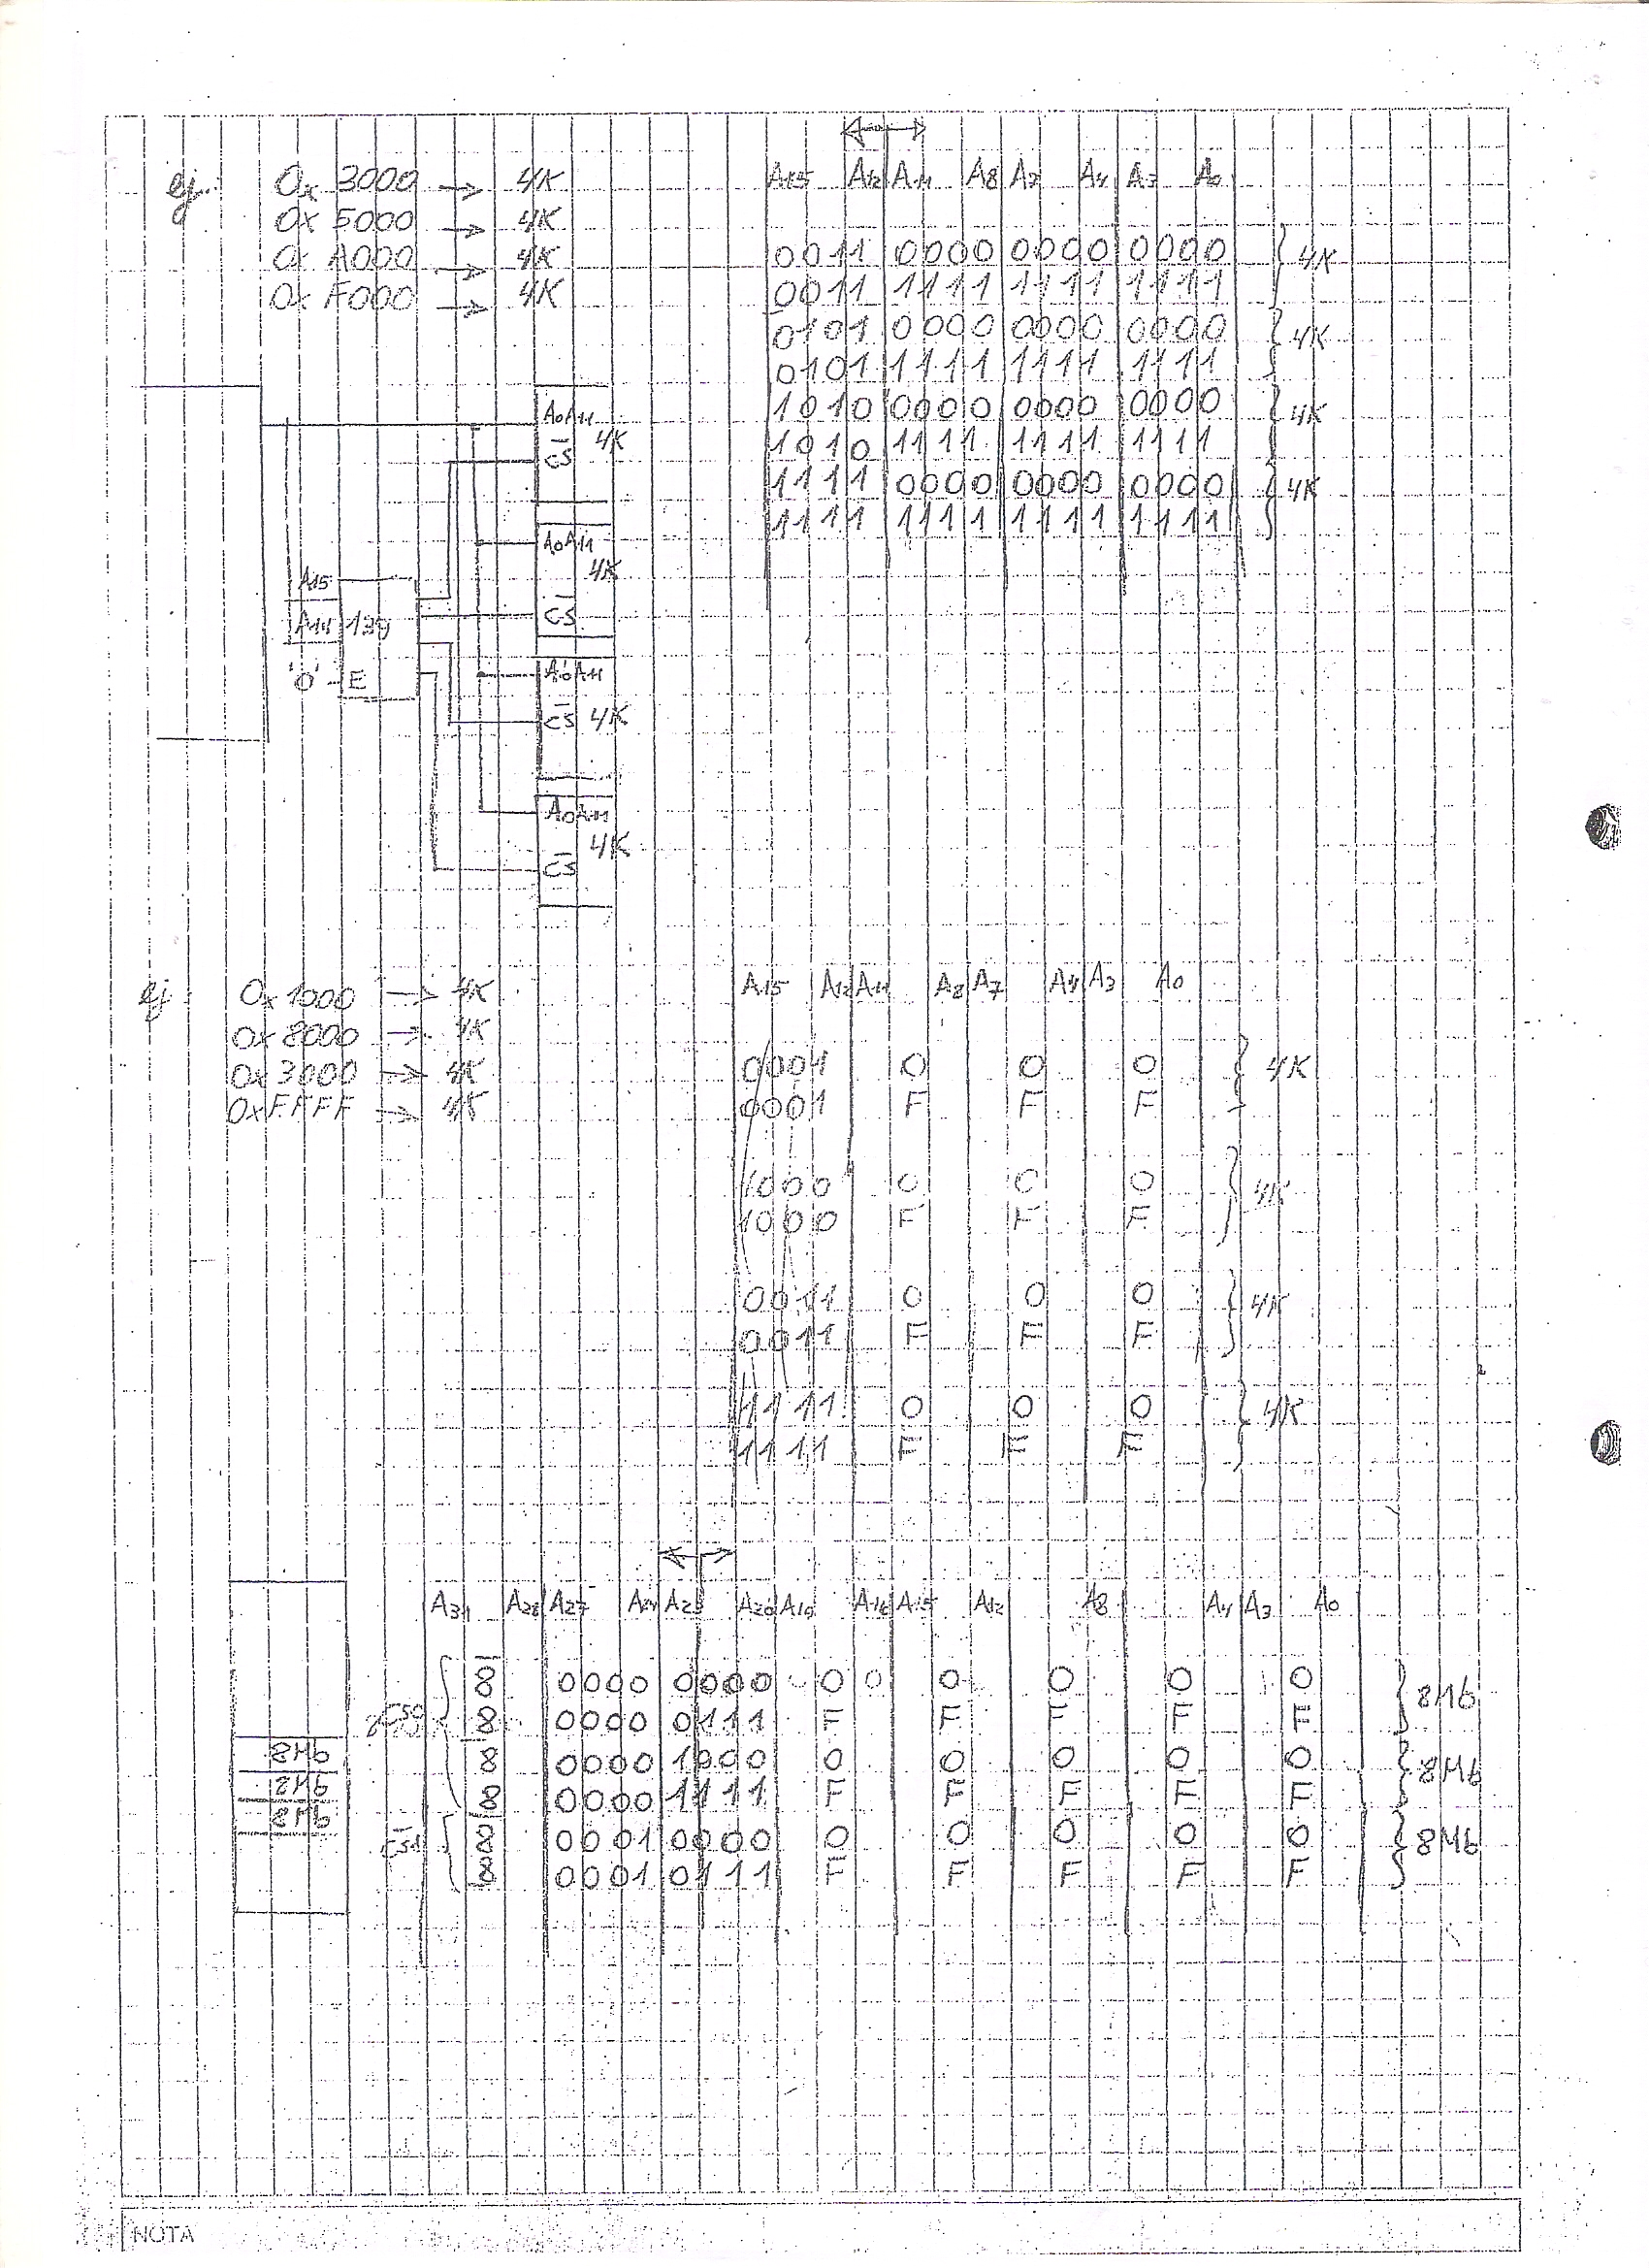 ej.: 0x 3000 → 4K
0x 5000 → 4K
0x A000 → 4K
0x F000 → 4K
A15 A12 A11 A8 A7 A4 A3 A0
0011 0000 0000 0000 } 4K
0011 1111 1111 1111
0101 0000 0000 0000 } 4K
0101 1111 1111 1111
1010 0000 0000 0000 } 4K
1010 1111 1111 1111
1111 0000 0000 0000 } 4K
1111 1111 1111 1111
A0A11
4K
C̅S̅
A0A11
4K
C̅S̅
A15
A14 139
'0' E
A0A11
C̅S̅ 4K
A0A11
4K
C̅S̅
ej: 0x 1000 → 4K
0x 8000 → 4K
0x 3000 → 4K
0xFFFF → 4K
A15 A12 A11 A8 A7 A4 A3 A0
0001 0 0 0 } 4K
0001 F F F
1000 0 0 0 } 4K
1000 F F F
0011 0 0 0 } 4K
0011 F F F
1111 0 0 0 } 4K
1111 F F F
A31 A28 A27 A24 A23 A20 A19 A16 A15 A12 A8 A4 A3 A0
8 0000 0000 0 0 0 0 0 0 } 8Mb
8 0000 0111 F F F F F
8 0000 1000 0 0 0 0 0 } 8Mb
8 0000 1111 F F F F F
8 0001 0000 0 0 0 0 0 } 8Mb
8 0001 0111 F F F F F
CS0
CS1
8Mb
8Mb
8Mb
NOTA